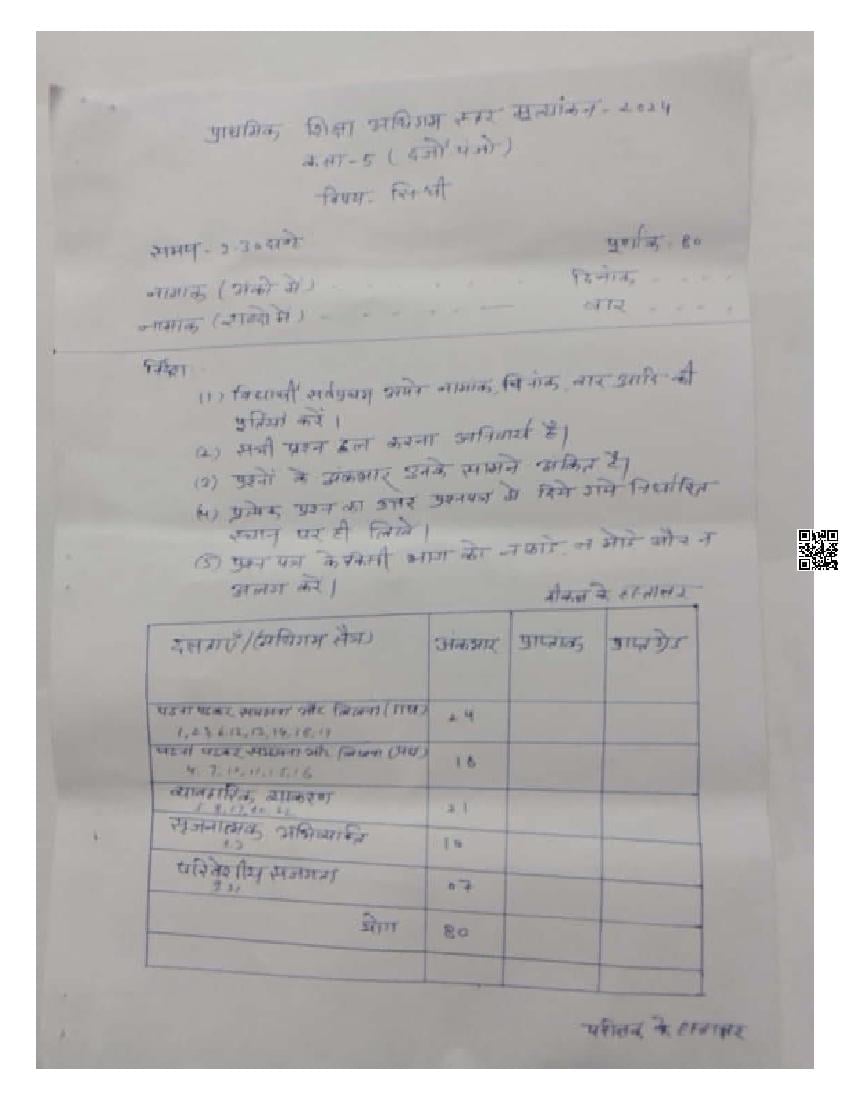 प्राथमिक शिक्षा अधिगम स्तर मूल्यांकन - 2024
कक्षा - 5 ( दर्जो पंजो )
विषय - सिन्धी
समय - 2.30 घण्टे पूर्णांक - 80
नामांक ( अंको में ) दिनांक
नामांक ( शब्दो में ) वार
निर्देश
(1) विद्यार्थी सर्वप्रथम अपने नामांक, दिनांक, वार आदि की
पूर्तियां करें ।
(2) सभी प्रश्न हल करना अनिवार्य है ।
(3) प्रश्नों के अंकभार उनके सामने अंकित है ।
(4) प्रत्येक प्रश्न का उत्तर प्रश्नपत्र में दिये गये निर्धारित
स्थान पर ही लिखे ।
(5) प्रश्न पत्र के किसी भाग को न फाडे, न मोडे और न
अलग करें ।
वीक्षक के हस्ताक्षर
दक्षताएँ / (अधिगम क्षेत्र) अंकभार प्राप्तांक प्राप्त ग्रेड
पढना पढकर समझना और लिखना (गद्य) 24
पढना पढकर समझना और लिखना (पद्य) 18
व्यावहारिक व्याकरण 21
सृजनात्मक अभिव्यक्ति 10
परिवेशीय सजगता 07
योग 80
परीक्षक के हस्ताक्षर